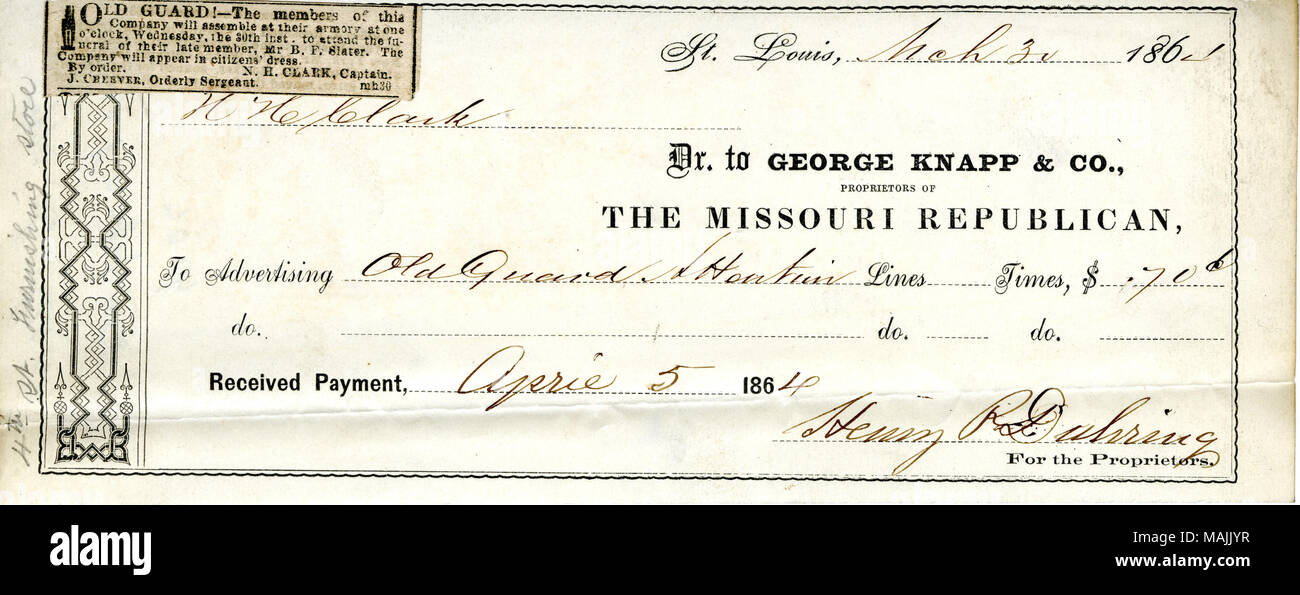 OLD GUARD!—The members of this
Company will assemble at their armory at one
o'clock, Wednesday, the 30th inst. to attend the fu-
neral of their late member, Mr B. F. Slater. The
Company will appear in citizens' dress.
By order. N. H. CLARK, Captain.
J. CHEEVER, Orderly Sergeant. mh30
St. Louis, Mch 30 1864
N H Clark
Dr. to GEORGE KNAPP & CO.,
PROPRIETORS OF
THE MISSOURI REPUBLICAN,
To Advertising Old Guard Attention Lines Times, $ .70
do. do. do.
Received Payment, April 5 1864
Henry R Duhring
For the Proprietors.
4th Rt. Furnishing store
alamy
Image ID: MAJJYR
www.alamy.com